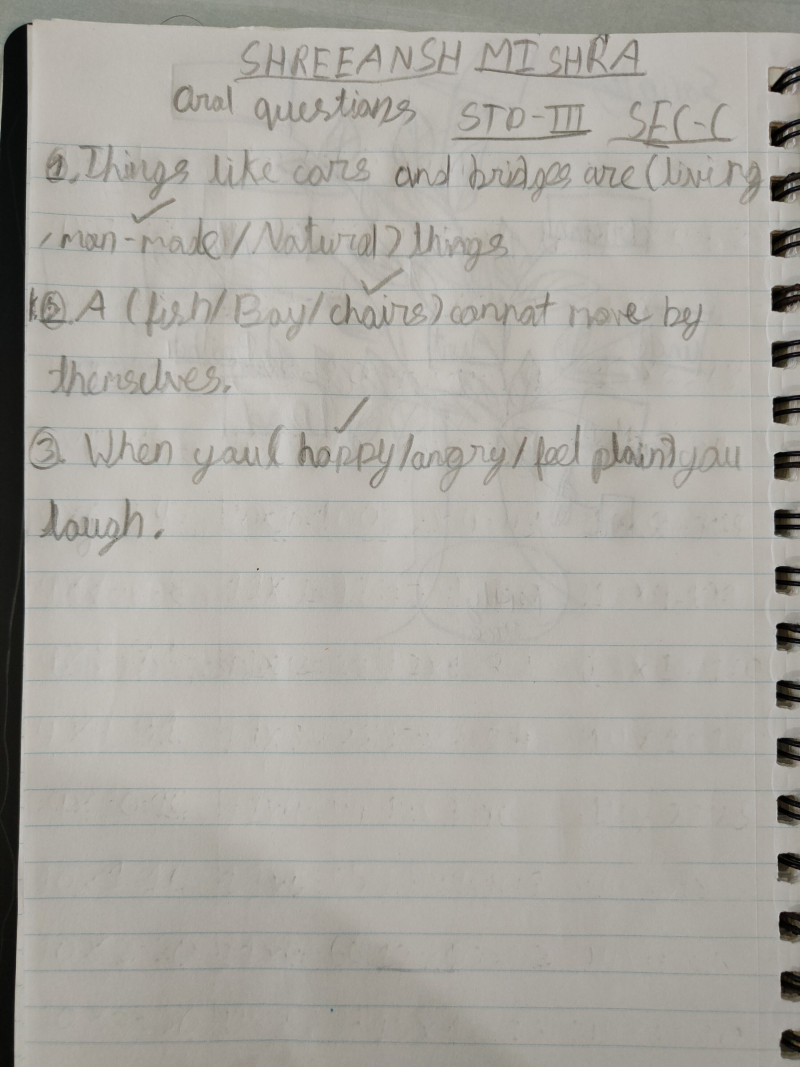 SHREEANSH MISHRA
Oral questions STD-III SEC-C
1. Things like cars and bridges are (living
/man-made/Natural) things
2. A (fish/Boy/chairs) cannot move by
themselves.
3. When you (happy/angry/feel plain) you
laugh.